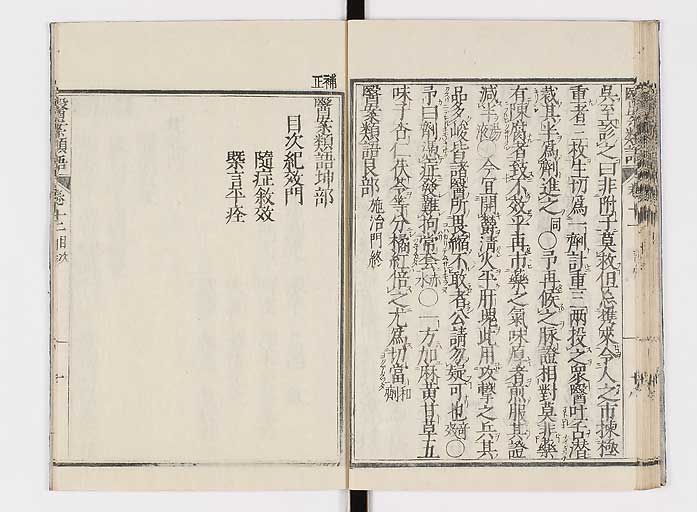 吳至診之曰非附子莫救但忘攜來令人之市揀極
重者三枚生切為一劑計重三兩投之衆醫吐舌潛
裁其半為劑進之同○予再候之脉證相對莫非藥
有陳腐者致不效乎再市藥之氣味厚者煎服其證
減半液○今宜開欝清火平肝塊此用攻擊之兵其
品多峻皆諸醫所畏縮不敢者公請勿疑可也奇○
予曰劑慂症發難拘常套亦水○一方加麻黃甘草五
味子杏仁茯苓等分橘紅倍之尤為切當和劑
醫案類語艮部 施治門終
補正
醫案類語坤部
目次紀效門
隨症敘效
槩言平痊
醫案類語
卷十二目次